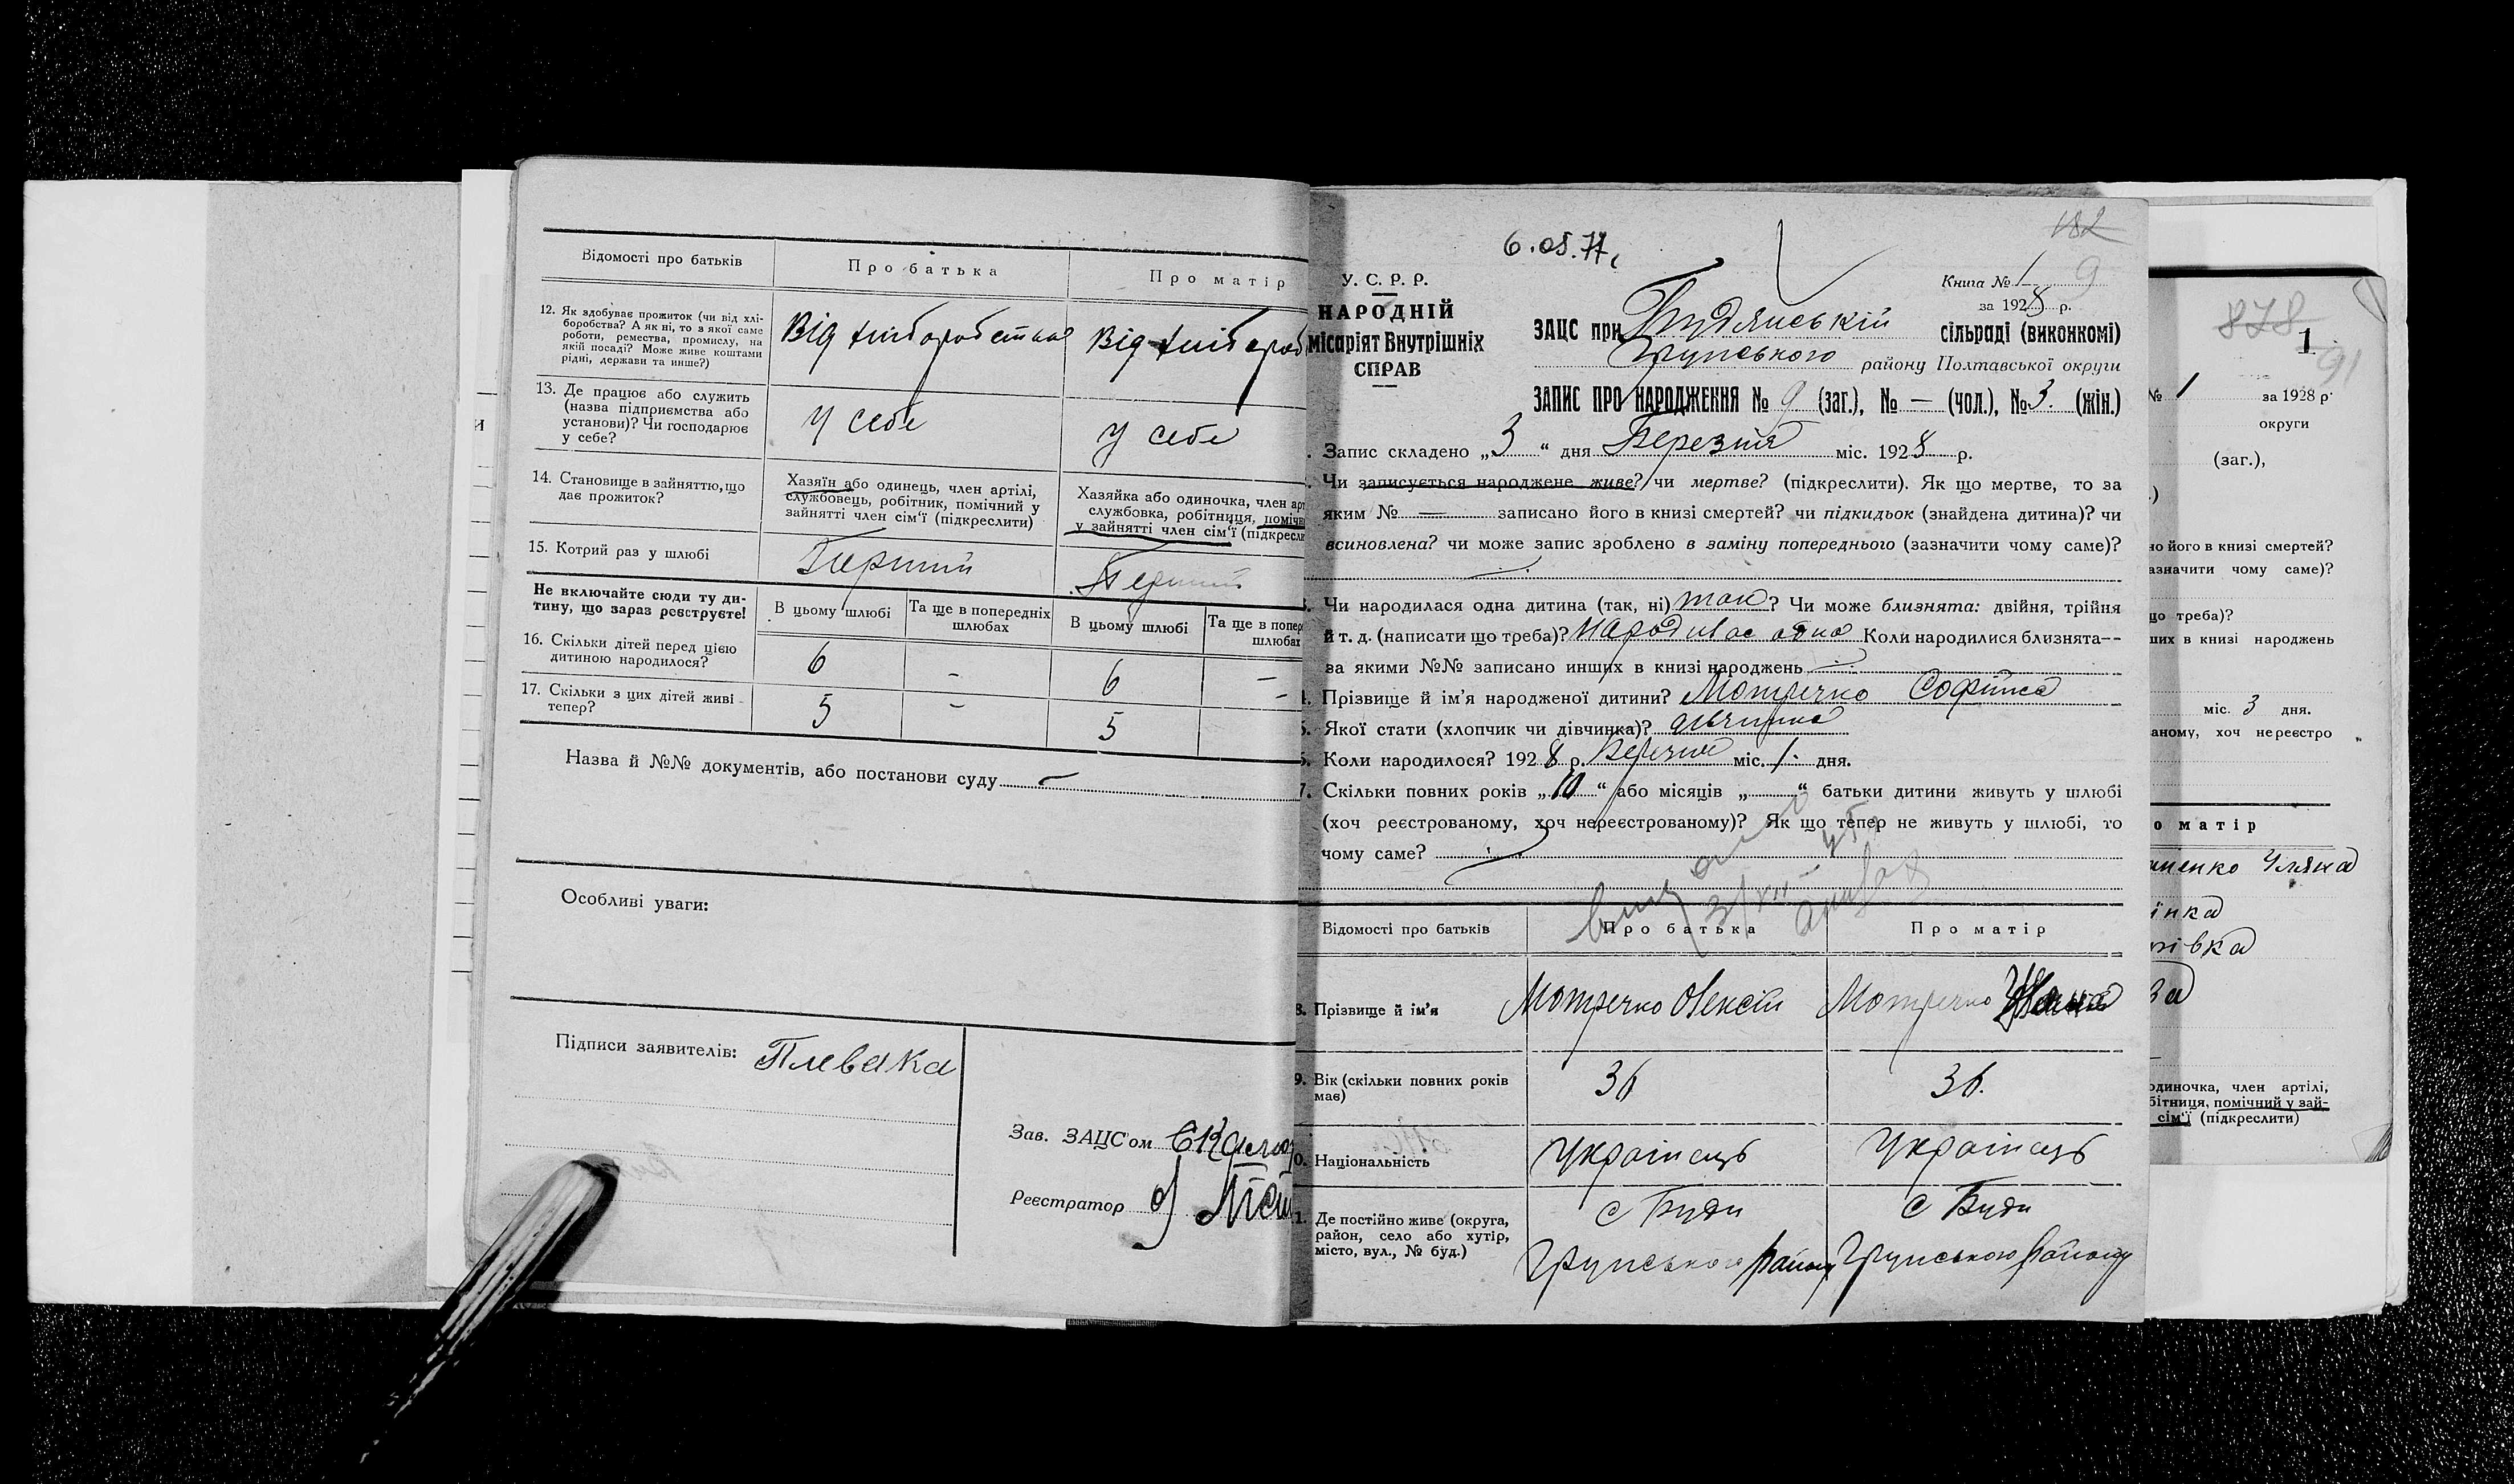 Відомості про батьків
Про батька
Про матір
12. Як здобуває прожиток (чи від хлі-
боробства? А як ні, то з якої саме
роботи, ремества, промислу, на
якій посаді? Може живе коштами
рідні, держави та инше?)
Від хліборобства
Від хлібороб
13. Де працює або служить
(назва підприємства або
установи)? Чи господарює
у себе?
У себе
У себе
14. Становище в зайняттю, що
дає прожиток?
Хазяїн або одинець, член артілі,
службовець, робітник, помічний у
зайнятті член сім'ї (підкреслити)
Хазяйка або одиночка, член арт
службовка, робітниця, помічн
у зайнятті член сім'ї (підкресли
15. Котрий раз у шлюбі
Перший
Перший
Не включайте сюди ту ди-
тину, що зараз реєструєте!
В цьому шлюбі
Та ще в попередніх
шлюбах
В цьому шлюбі
Та ще в попер
шлюбах
16. Скільки дітей перед цією
дитиною народилося?
6 - 6 -
17. Скільки з цих дітей живі
тепер?
5 - 5 -
Назва й №№ документів, або постанови суду —
Особливі уваги:
Підписи заявителів: Плевака
Зав. ЗАЦС'ом
Реєстратор
182
6.05.77
У. С. Р. Р.
НАРОДНІЙ
місаріят Внутрішніх
СПРАВ
Книга № 1 9
за 1928 р.
ЗАЦС при Будянській сільраді (виконкомі)
Грунського району Полтавської округи
ЗАПИС ПРО НАРОДЖЕННЯ № 9 (заг.), № — (чол.), № 3. (жін.)
. Запис складено „3" дня Березня міс. 1928 р.
. Чи записується народжене живе? чи мертве? (підкреслити). Як що мертве, то за
яким № — записано його в книзі смертей? чи підкидьок (знайдена дитина)? чи
всиновлена? чи може запис зроблено в заміну попереднього (зазначити чому саме)?
3. Чи народилася одна дитина (так, ні) так? Чи може близнята: двійня, трійня
й т. д. (написати що треба)? народилас одна Коли народилися близнята—
за якими №№ записано инших в книзі народжень
4. Прізвище й ім'я народженої дитини? Мотречко Софіика
5. Якої статі (хлопчик чи дівчинка)? дівчинка
6. Коли народилося? 1928 р. Березня міс. 1. дня.
7. Скільки повних років „10" або місяців „ " батьки дитини живуть у шлюбі
(хоч реєстрованому, хоч нереєстрованому)? Як що тепер не живуть у шлюбі, то
чому саме?
Відомості про батьків
Про батька
Про матір
8. Прізвище й ім'я
Мотречко Олексій
Мотречко
9. Вік (скільки повних років
має)
36
36.
0. Національність
Українець
Українець
1. Де постійно живе (округа,
район, село або хутір,
місто, вул., № буд.)
с Буди
Грунського району
с Буди
Грунського району
878
1
91
№ 1 за 1928 р.
округи
(заг.),
но його в книзі смертей?
азначити чому саме)?
що треба)?
ших в книзі народжень
міс. 3 дня.
аному, хоч нереєстро
о матір
ненко Уляна
інка
івка
одиночка, член артілі,
бітниця, помічний у зай-
сім'ї (підкреслити)